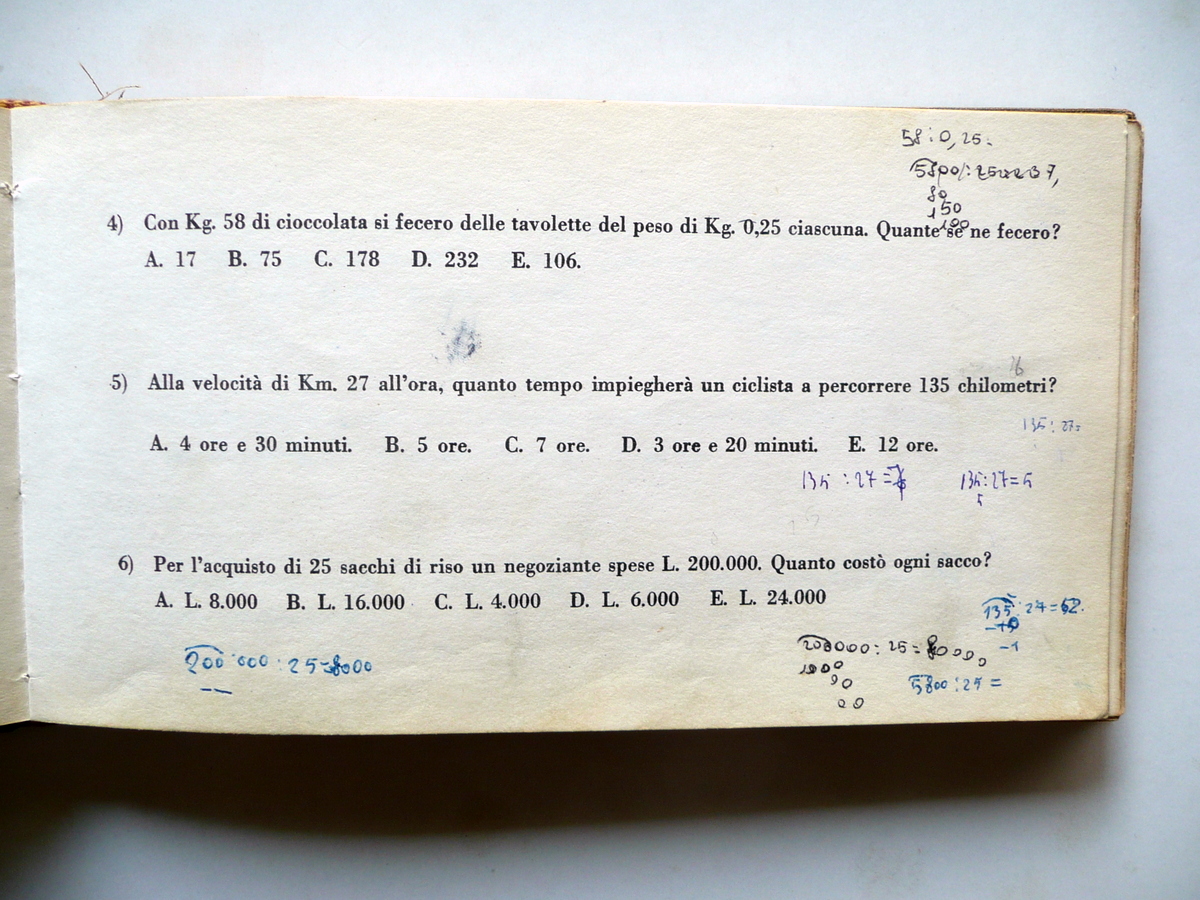 58:0,25=
4) Con Kg. 58 di cioccolata si fecero delle tavolette del peso di Kg. 0,25 ciascuna. Quante se ne fecero?
80
150
100
A. 17 B. 75 C. 178 D. 232 E. 106.
5) Alla velocità di Km. 27 all'ora, quanto tempo impiegherà un ciclista a percorrere 135 chilometri?
135:27=
A. 4 ore e 30 minuti. B. 5 ore. C. 7 ore. D. 3 ore e 20 minuti. E. 12 ore.
135:27= 135:27=5
5
6) Per l'acquisto di 25 sacchi di riso un negoziante spese L. 200.000. Quanto costò ogni sacco?
A. L. 8.000 B. L. 16.000 C. L. 4.000 D. L. 6.000 E. L. 24.000
135:27=
200.000:25=8000
200000:25=
5800:25=